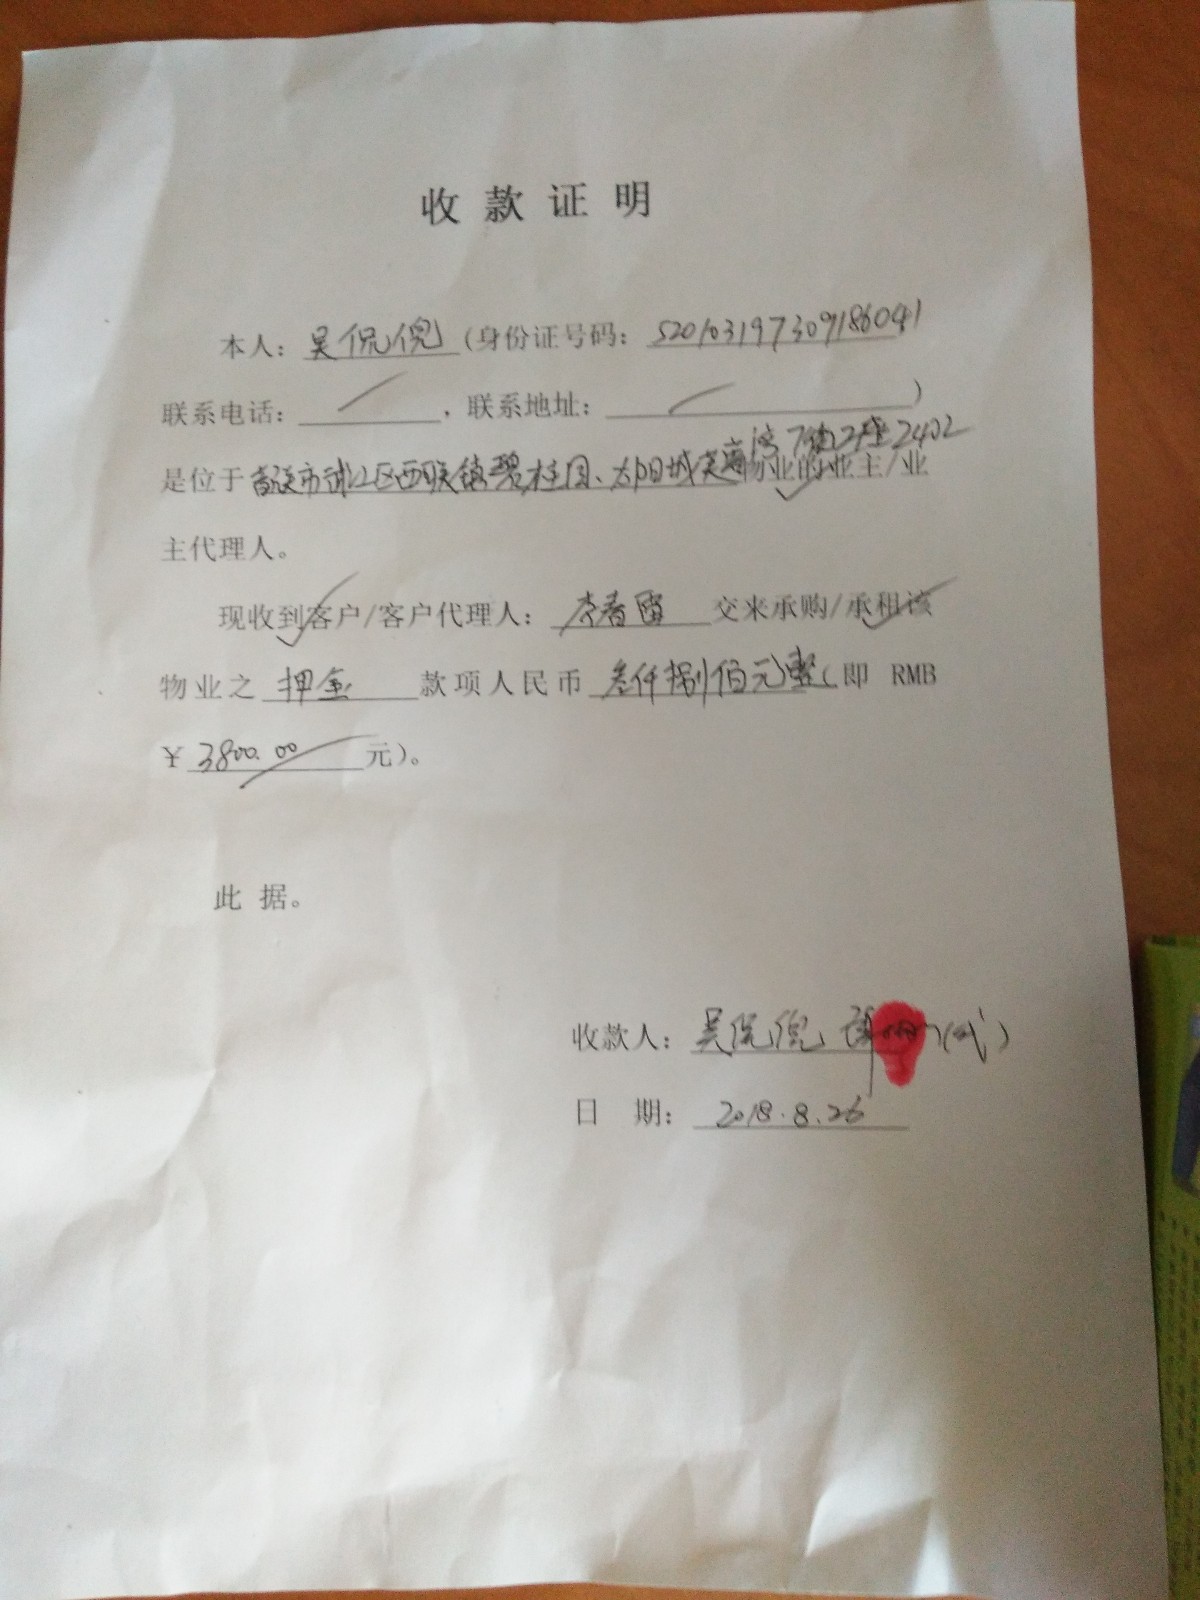 收款证明
本人：吴侃倪（身份证号码：520103197309186041
联系电话：／，联系地址：／）
湾7街2座2402
是位于韶关市武江区西联镇碧桂园、太阳城芙蓉物业的业主/业
主代理人。
现收到客户/客户代理人：李春雷 交来承购/承租该
物业之 押金 款项人民币 叁仟捌佰元整（即 RMB
¥3800.00元）。
此 据。
收款人：吴侃倪 （代）
日 期：2018.8.26